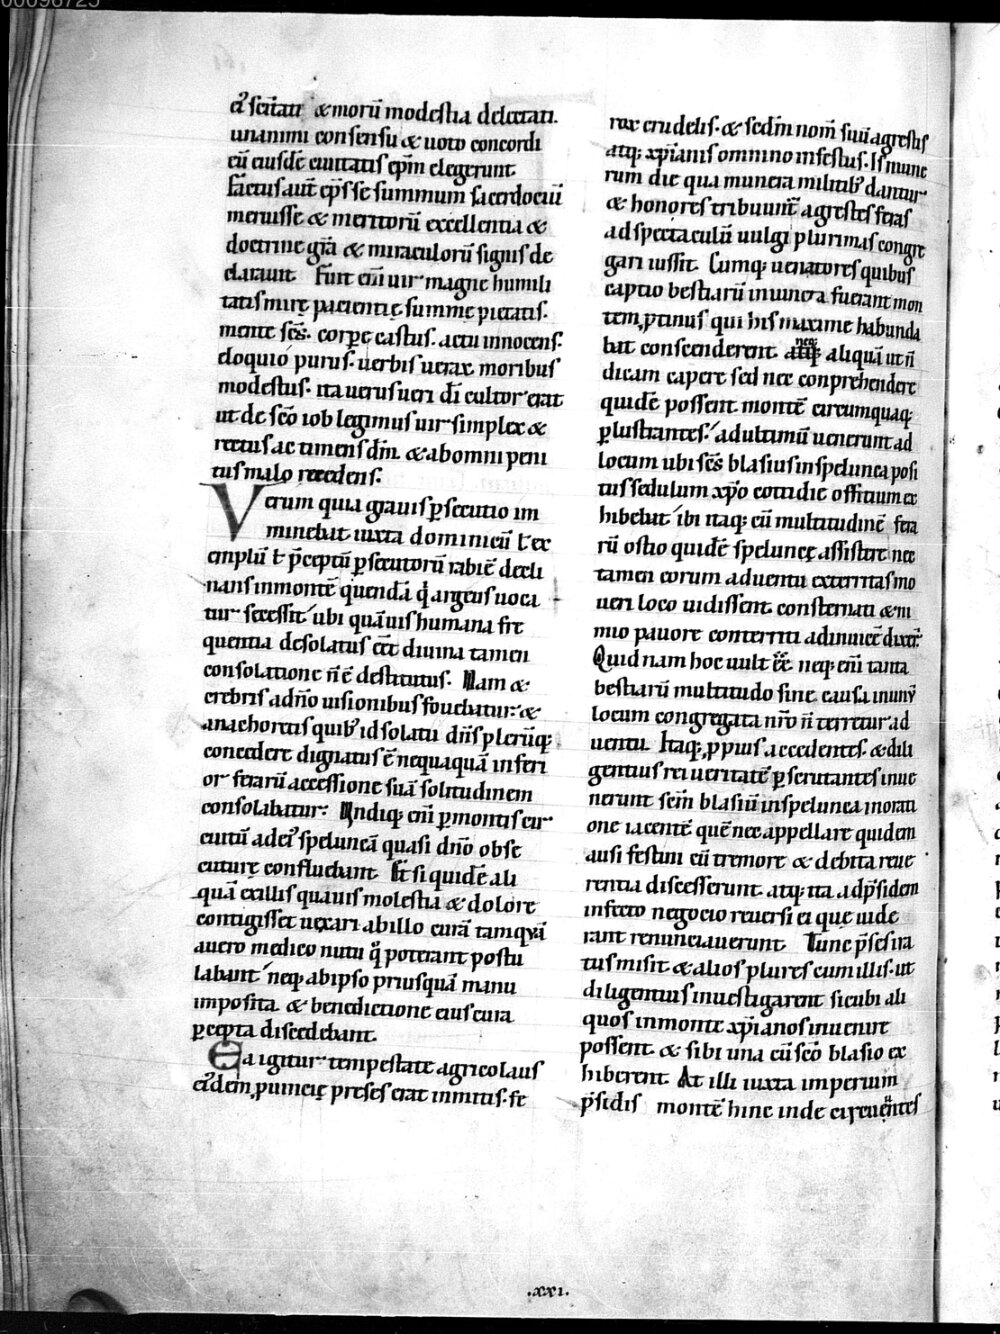 eꝰ scītati & morū modestia delectati.
unanimi consensu & uoto concordi
cū eiusdē ciuitatis ep̄m elegerunt.
Factus aut̄ ep̄s se summum sacerdociū
meruisse & meritorū excellentia &
doctrine gr̄a & miraculorū signis de
clarauit. Fuit eni uir magne humili
tatis mirę pacientię summę pietatis.
mente sc̄s. corpe castus. actu innocens.
eloquio purus. uerbis uerax moribus
modestus. ita uerus ueri dī cultor erat
ut de sc̄o iob legimus uir simplex &
rectus ac timens dm̄. & ab omni peni
tus malo recedens.
Verum quia grauis ꝑsecutio im
minebat iuxta dominicū ł ex
emplū ł p̄ceptū ꝑsecutorū rabiē decli
nans in montē quendā q̄ argeus uoca
tur secessit ubi quāuis humana fre
quentia desolatus eēt diuina tamen
consolatione n̄ ē destitutus. Nam &
crebris a dn̄o uisionibus fouebatur. &
anachoritis quibꝰ id solatii diīs plerūq;
concedere dignatus ē nequaquā inferi
or ferarū accessione suā solitudinem
consolabatur. Undiq; eni ꝑ montis cir
cuitū ad eiꝰ speluncā quasi dn̄o obse
cuturę confluebant. Et si quidē ali
quā ex illis quauis molestia & dolore
contigisset uexari ab illo curā tamquā
a uero medico nutu q̊ poterant postu
labant neq; ab ipso priusquā manu
imposita & benedictione eius cura
ꝑcepta discedebant.
Ea igitur tempestate agricolaus
eiꝰdem ꝓuincię preses erat inmitis. fe
rox crudelis. & scdm nom̄ suū agrestis
atq; xp̄ianis omnino infestus. Is mune
rum die qua munera militibꝰ dantur
& honores tribuunt̄ agrestes feras
ad spectaculū uulgi plurimas congre
gari iussit. Cumq; uenatores quibus
captio bestiarū iniuncta fuerant mon
tem ꝓtinus qui his maxime habunda
bat conscenderent. neq; aliquā ut n̄
dicam capere sed nec conprehendere
quidē possent montē circumquaq;
ꝑlustrantes. ad ultimū uenerunt ad
locum ubi sc̄s blasius in spelunca posi
tus sedulum xp̄o cottidie offitium ex
hibebat ibi itaq; cū multitudinē fera
rū ostio quidē speluncę assistere nec
tamen eorum aduentu exterritas mo
ueri loco uidissent consternati & ni
mio pauore conterriti adinuicē dixer̄.
Quid nam hoc uult eē. neq; eni tanta
bestiarū multitudo sine causa inunū
locum congregata nr̄o n̄ terretur ad
uentu. Itaq; ꝓpius accedentes. & dili
gentius rei ueritatē ꝑscrutantes inue
nerunt scm̄ blasiū in spelunca in orati
one iacentē quē nec appellare quidem
ausi festini cū tremore & debita reue
rentia discesserunt. atq; ita ad p̄sidem
infecto negocio reuersi ei que uide
rant renunciauerunt. Tunc p̄ses ira
tus misit & alios plures cum illis. ut
diligentius inuestigarent sicubi ali
quos in monte xp̄ianos inuenire
possent. & sibi una cū sc̄o blasio ex
hiberent. At illi iuxta imperium
p̄sidis montē hinc inde circueūtes
.xxi.